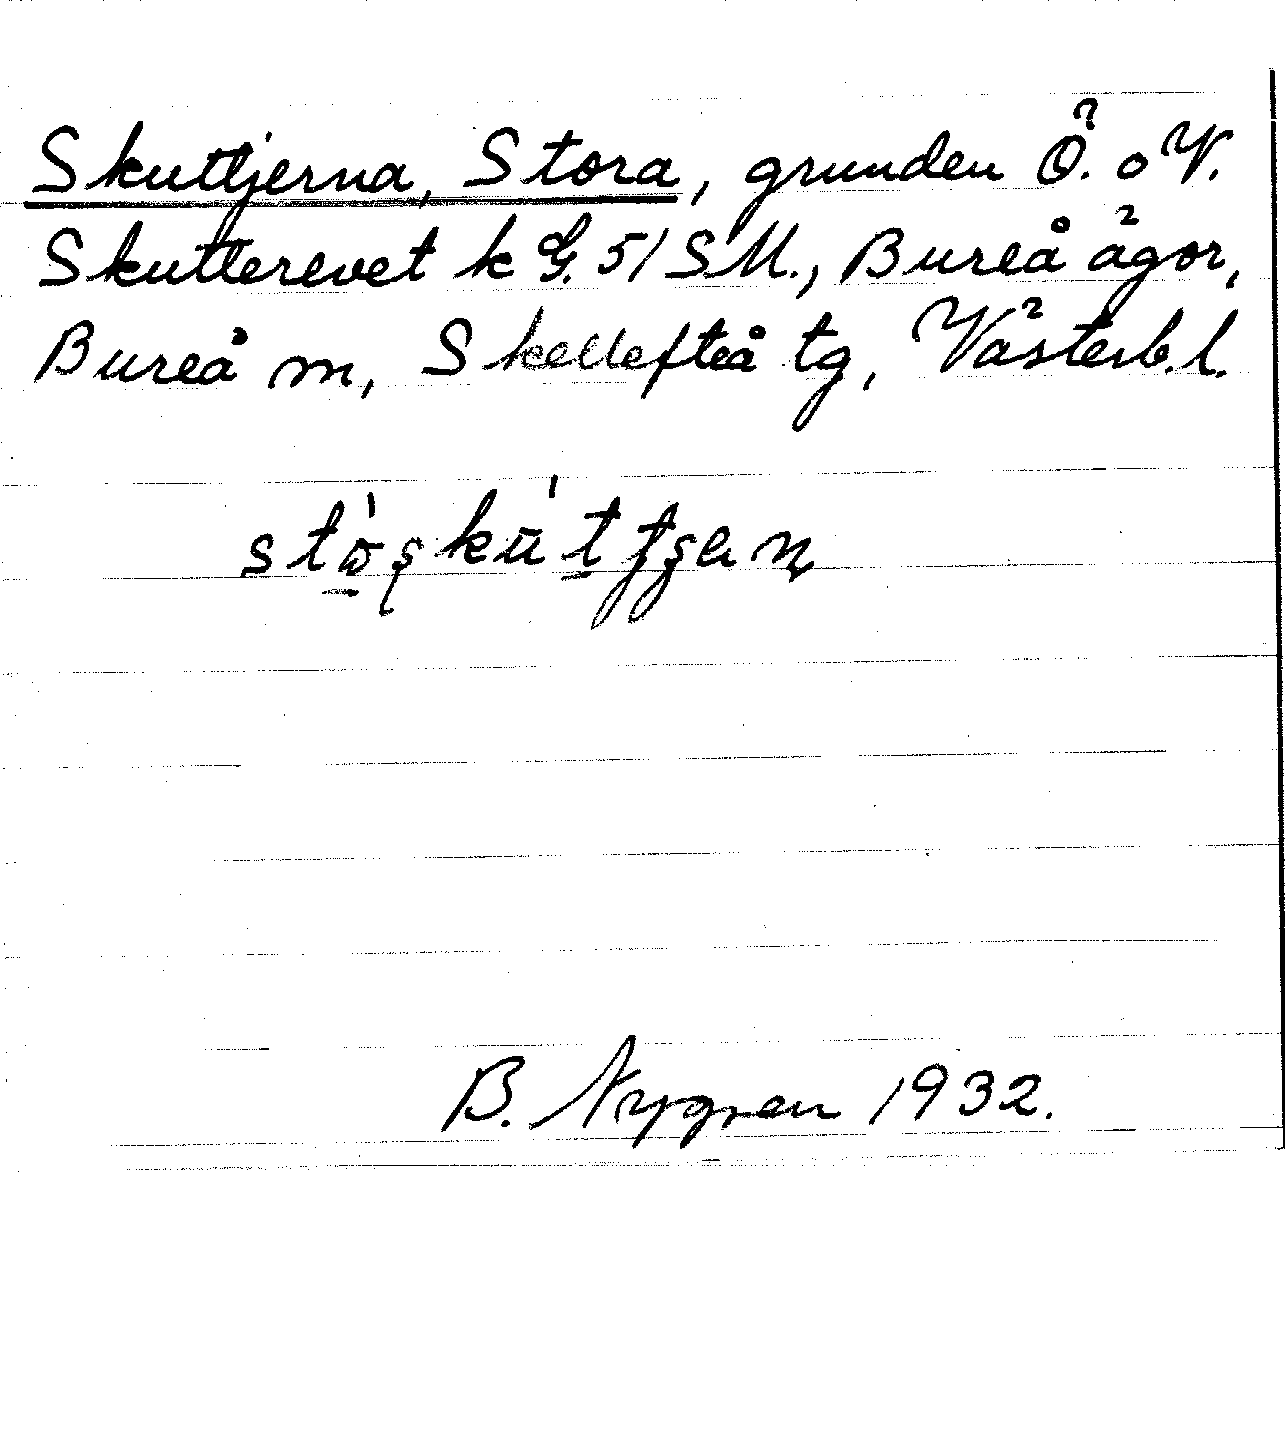 Skuttjerna, Stora, grunden Ö. o V.
Skutterevet k G. 51 SM., Bureå ägor,
Bureå m, Skellefteå tg, Västerb. l.
B. Nygren 1932.